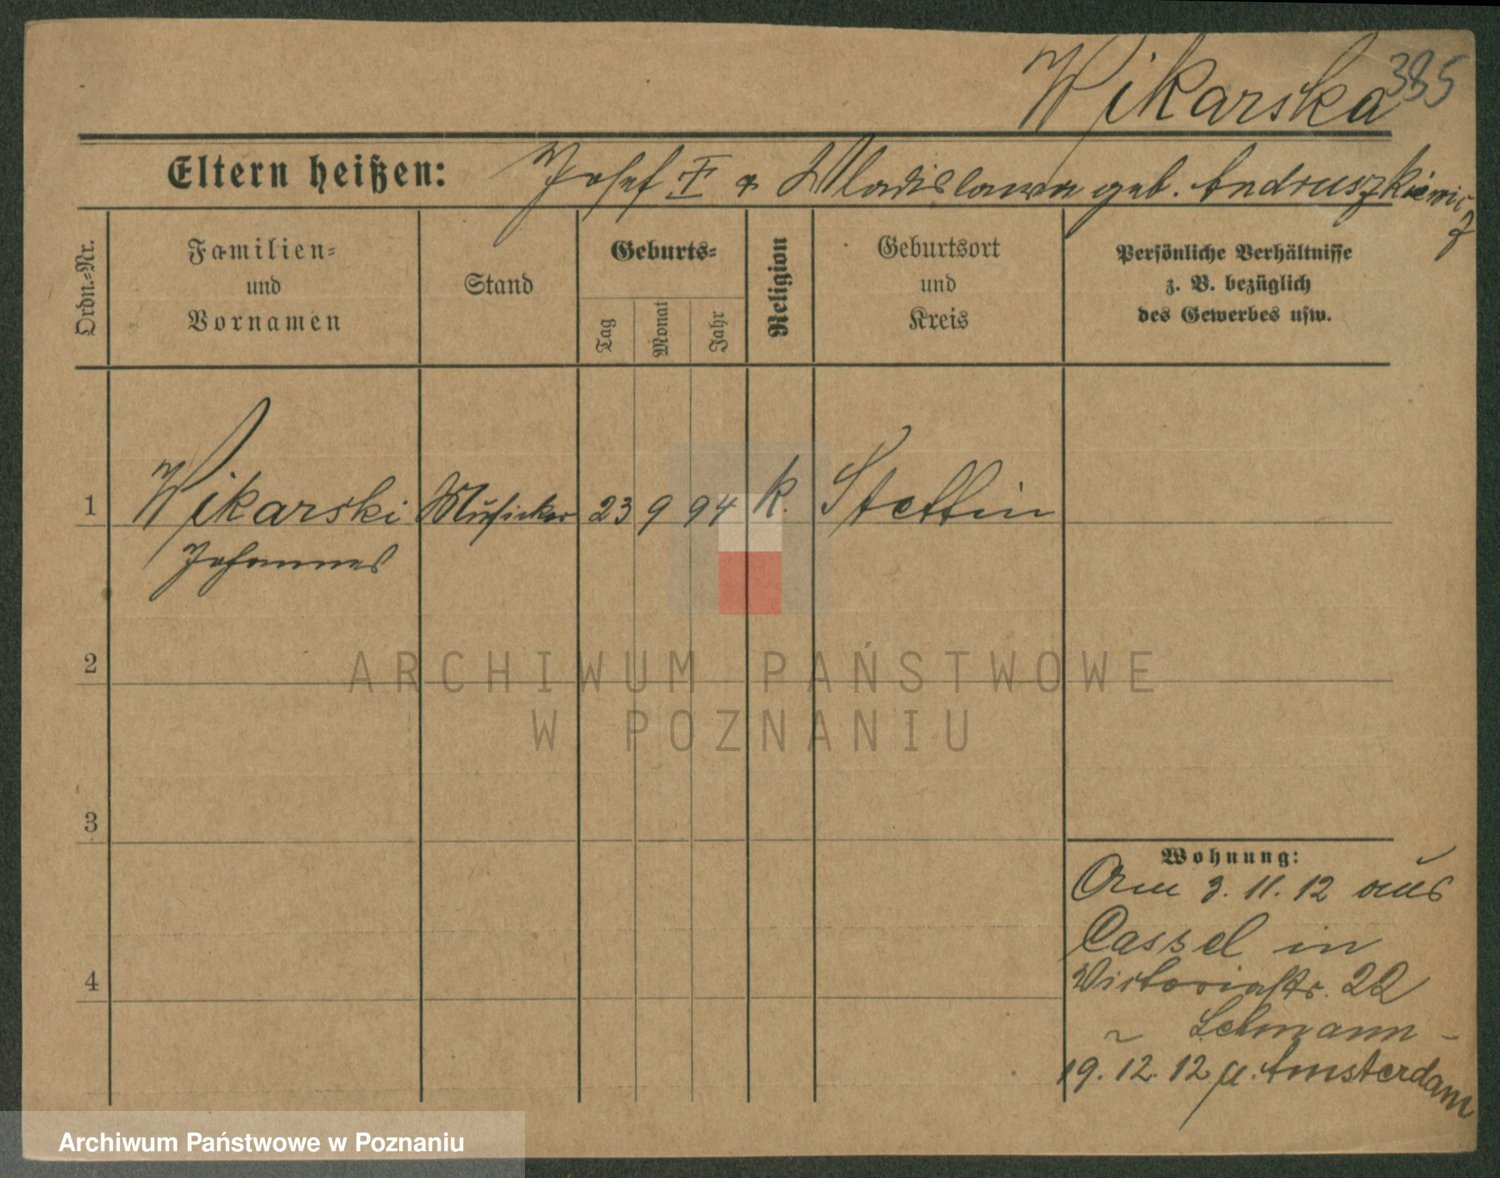 Wikarska 385
Eltern heißen: Josef F & Wladislawa geb. Andruszkiewicz
Ordn.-Nr.
Familien-
und
Vornamen
Stand
Geburts-
Tag
Monat
Jahr
Religion
Geburtsort
und
Kreis
Persönliche Verhältnisse
z. B. bezüglich
des Gewerbes usw.
1 Wikarski Musiker 23 9 94 k. Stettin
Johannes
2
ARCHIWUM PAŃSTWOWE
W POZNANIU
3
Wohnung:
Am 3. 11. 12 aus
Cassel in
Victoriastr. 22
Lehmann
4
19. 12. 12 n. Amsterdam
Archiwum Państwowe w Poznaniu